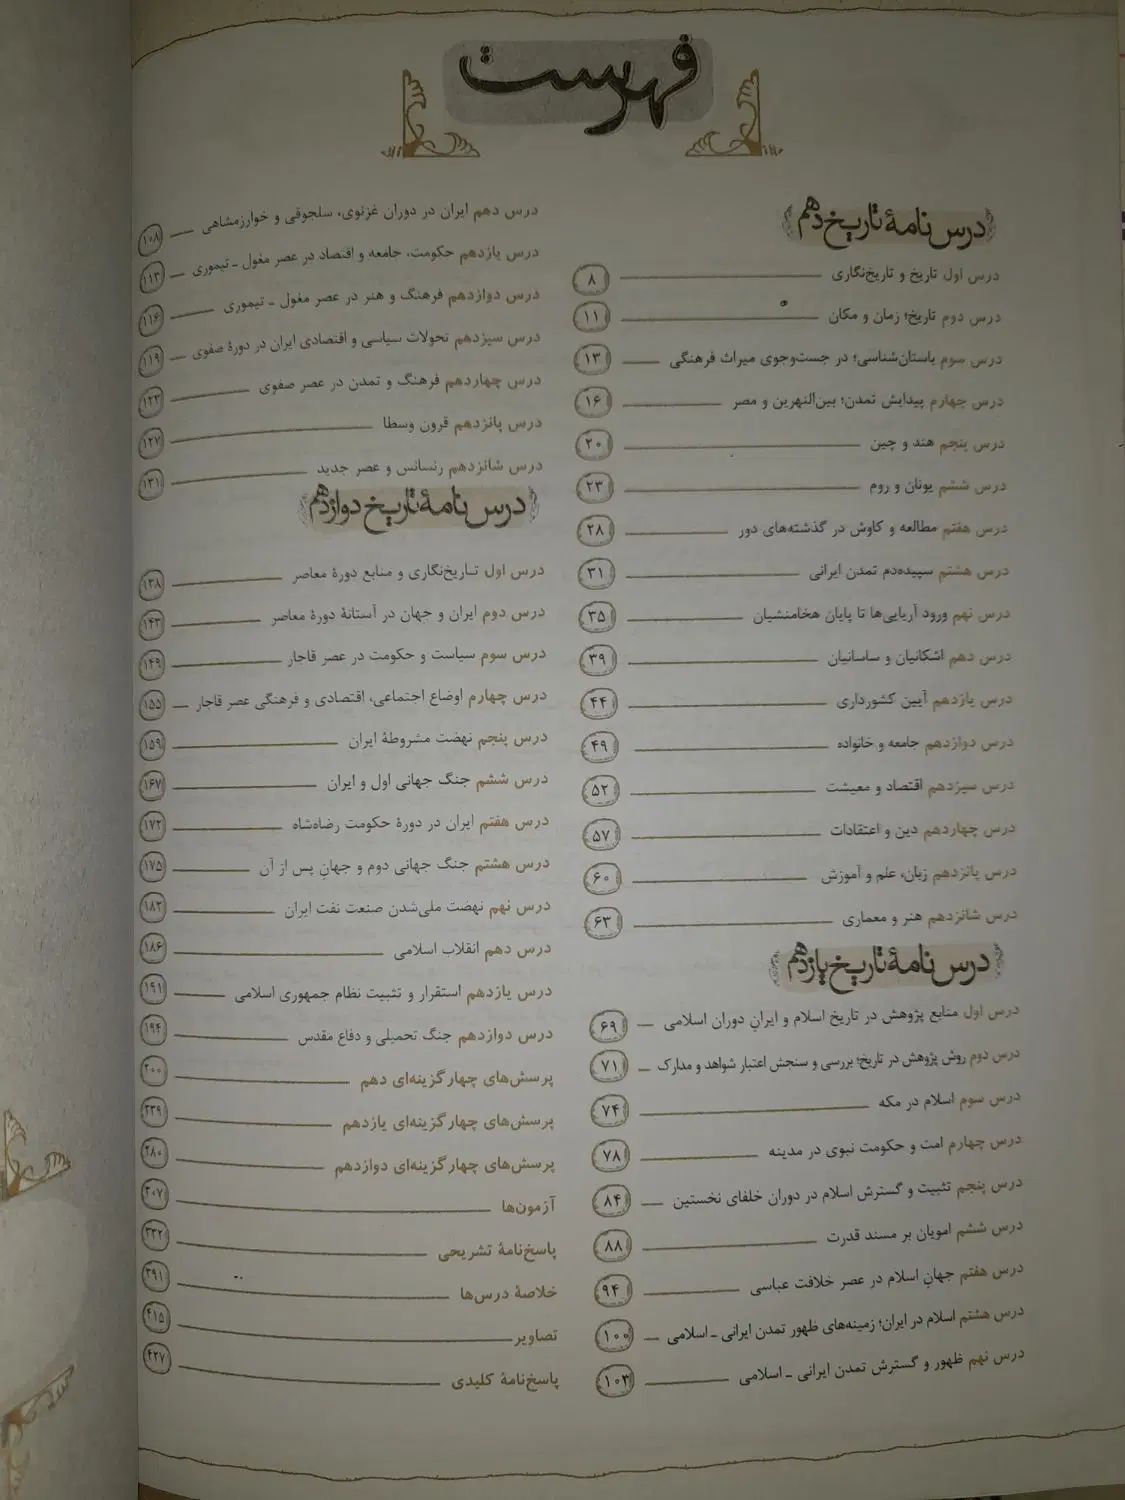 فهرست
درس‌نامهٔ تاریخ دهم
درس اول تاریخ و تاریخ‌نگاری ۸
درس دوم تاریخ؛ زمان و مکان ۱۱
درس سوم باستان‌شناسی؛ در جست‌وجوی میراث فرهنگی ۱۳
درس چهارم پیدایش تمدن؛ بین‌النهرین و مصر ۱۶
درس پنجم هند و چین ۲۰
درس ششم یونان و روم ۲۳
درس هفتم مطالعه و کاوش در گذشته‌های دور ۲۸
درس هشتم سپیده‌دم تمدن ایرانی ۳۱
درس نهم ورود آریایی‌ها تا پایان هخامنشیان ۳۵
درس دهم اشکانیان و ساسانیان ۳۹
درس یازدهم آیین کشورداری ۴۴
درس دوازدهم جامعه و خانواده ۴۹
درس سیزدهم اقتصاد و معیشت ۵۲
درس چهاردهم دین و اعتقادات ۵۷
درس پانزدهم زبان، علم و آموزش ۶۰
درس شانزدهم هنر و معماری ۶۳
درس‌نامهٔ تاریخ یازدهم
درس اول منابع پژوهش در تاریخ اسلام و ایرانِ دوران اسلامی ۶۹
درس دوم روش پژوهش در تاریخ؛ بررسی و سنجش اعتبار شواهد و مدارک ۷۱
درس سوم اسلام در مکه ۷۴
درس چهارم امت و حکومت نبوی در مدینه ۷۸
درس پنجم تثبیت و گسترش اسلام در دوران خلفای نخستین ۸۴
درس ششم امویان بر مسند قدرت ۸۸
درس هفتم جهانِ اسلام در عصر خلافت عباسی ۹۴
درس هشتم اسلام در ایران؛ زمینه‌های ظهور تمدن ایرانی ـ اسلامی ۱۰۰
درس نهم ظهور و گسترش تمدن ایرانی ـ اسلامی ۱۰۳
درس دهم ایران در دوران غزنوی، سلجوقی و خوارزمشاهی ۱۰۸
درس یازدهم حکومت، جامعه و اقتصاد در عصر مغول ـ تیموری ۱۱۳
درس دوازدهم فرهنگ و هنر در عصر مغول ـ تیموری ۱۱۶
درس سیزدهم تحولات سیاسی و اقتصادی ایران در دورهٔ صفوی ۱۱۹
درس چهاردهم فرهنگ و تمدن در عصر صفوی ۱۲۳
درس پانزدهم قرون وسطا ۱۲۷
درس شانزدهم رنسانس و عصر جدید ۱۳۱
درس‌نامهٔ تاریخ دوازدهم
درس اول تاریخ‌نگاری و منابع دورهٔ معاصر ۱۳۸
درس دوم ایران و جهان در آستانهٔ دورهٔ معاصر ۱۴۳
درس سوم سیاست و حکومت در عصر قاجار ۱۴۹
درس چهارم اوضاع اجتماعی، اقتصادی و فرهنگی عصر قاجار ۱۵۵
درس پنجم نهضت مشروطهٔ ایران ۱۵۹
درس ششم جنگ جهانی اول و ایران ۱۶۷
درس هفتم ایران در دورهٔ حکومت رضاشاه ۱۷۲
درس هشتم جنگ جهانی دوم و جهانِ پس از آن ۱۷۵
درس نهم نهضت ملی‌شدن صنعت نفت ایران ۱۸۲
درس دهم انقلاب اسلامی ۱۸۶
درس یازدهم استقرار و تثبیت نظام جمهوری اسلامی ۱۹۱
درس دوازدهم جنگ تحمیلی و دفاع مقدس ۱۹۴
پرسش‌های چهارگزینه‌ای دهم ۲۰۰
پرسش‌های چهارگزینه‌ای یازدهم ۲۳۹
پرسش‌های چهارگزینه‌ای دوازدهم ۲۸۰
آزمون‌ها ۳۰۷
پاسخ‌نامهٔ تشریحی ۳۳۲
خلاصهٔ درس‌ها ۳۹۱
تصاویر ۴۱۵
پاسخ‌نامهٔ کلیدی ۴۲۷